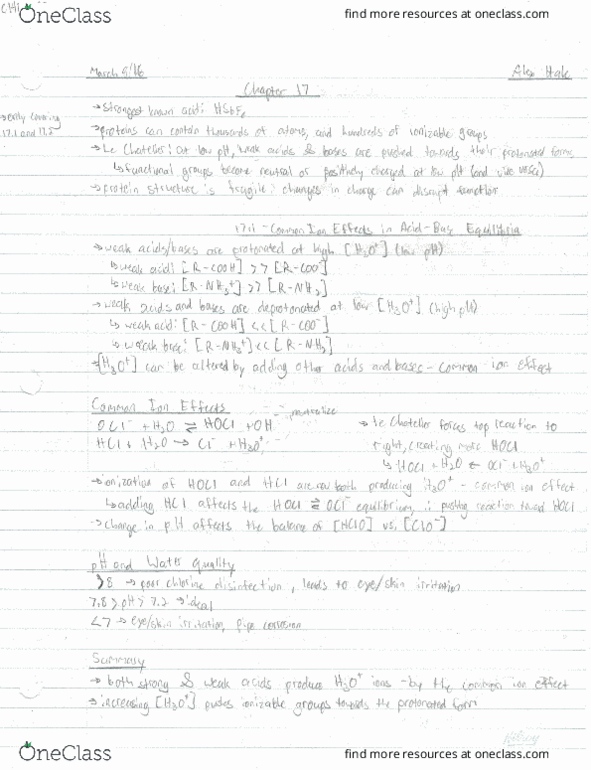 OneClass
find more resources at oneclass.com
March 9/16
Chapter 17
→ only covering
17.1 and 17.2
→ Strongest known acid: HSbF6
→ proteins can contain thousands of atoms, and hundreds of ionizable groups
→ Le Chatelier: at low pH, weak acids & bases are pushed towards their protonated forms
↳ functional groups become neutral or positively charged at low pH (and vice versa)
→ protein structure is fragile: changes in charge can disrupt function
17.1 - Common Ion Effects in Acid-Base Equilibria
→ weak acids/bases are protonated at high [H3O+] (low pH)
↳ weak acid: [R-COOH] >> [R-COO-]
↳ weak base: [R-NH3+] >> [R-NH2]
→ weak acids and bases are deprotonated at low [H3O+] (high pH)
↳ weak acid: [R-COOH] << [R-COO-]
↳ weak base: [R-NH3+] << [R-NH2]
→ [H3O+] can be altered by adding other acids and bases - common ion effect
Common Ion Effects
neutralize
OCl- + H2O ⇌ HOCl + OH-
HCl + H2O → Cl- + H3O+
→ Le Chatelier forces top reaction to
right, creating more HOCl
↳ HOCl + H2O ← OCl- + H3O+
→ ionization of HOCl and HCl are now both producing H3O+ - common ion effect
↳ adding HCl affects the HOCl ⇌ OCl- equilibrium, ∴ pushing reaction toward HOCl
→ change in pH affects the balance of [HClO] vs. [ClO-]
pH and Water Quality
>8 → poor chlorine disinfection, leads to eye/skin irritation
7.8 > pH > 7.2 → ideal
<7 → eye/skin irritation, pipe corrosion
Summary
→ both strong & weak acids produce H3O+ ions - by the common ion effect
→ increasing [H3O+] pushes ionizable groups towards the protonated form
OneClass
find more resources at oneclass.com